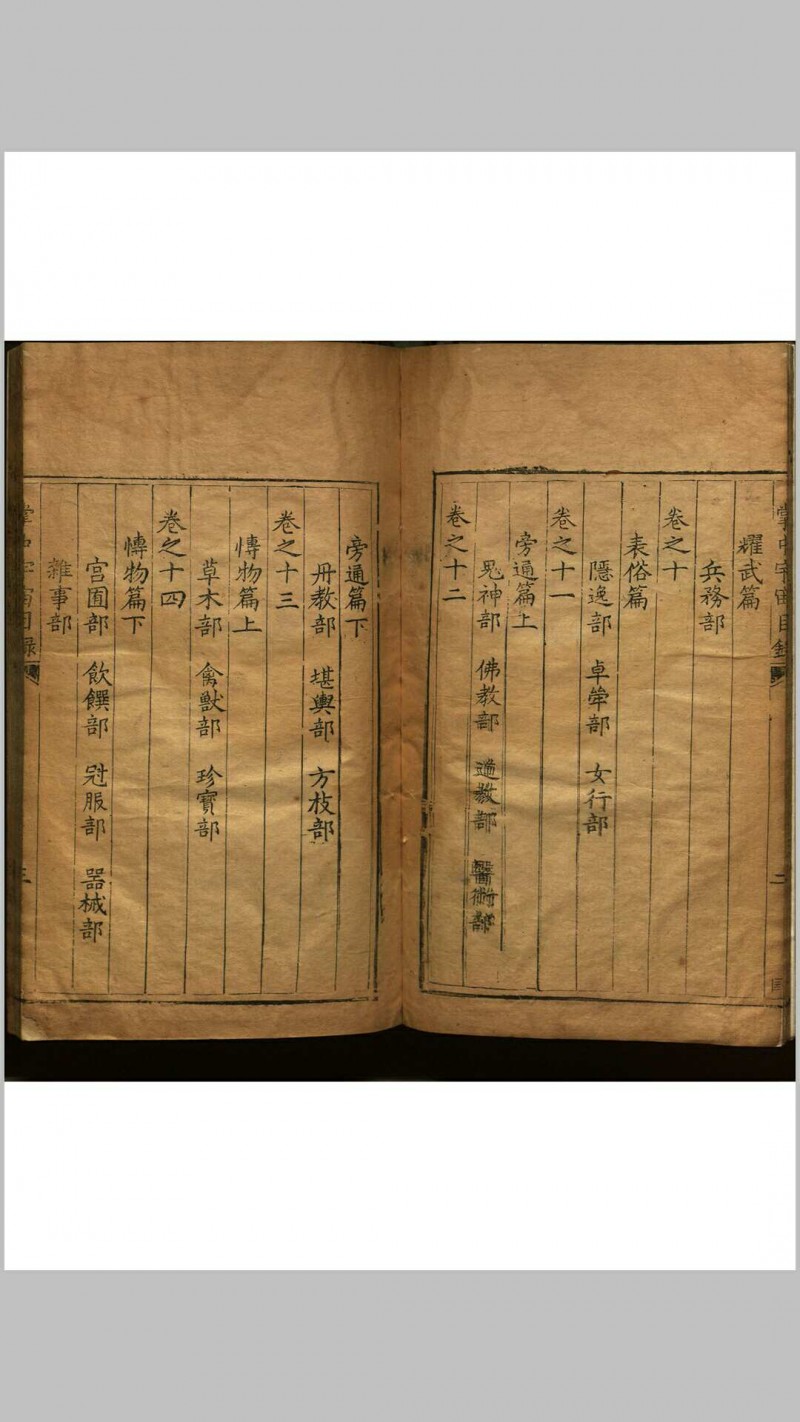 掌中宇宙目錄
二
耀武篇
兵務部
卷之十
表俗篇
隱逸部 卓犖部 女行部
卷之十一
旁通篇上
鬼神部 佛教部 道教部 醫術部
卷之十二
旁通篇下
丹教部 堪輿部 方枝部
卷之十三
愽物篇上
草木部 禽獸部 珍寶部
卷之十四
愽物篇下
宫囿部 飲饌部 冠服部 器械部
雜事部
掌中宇宙目錄
三